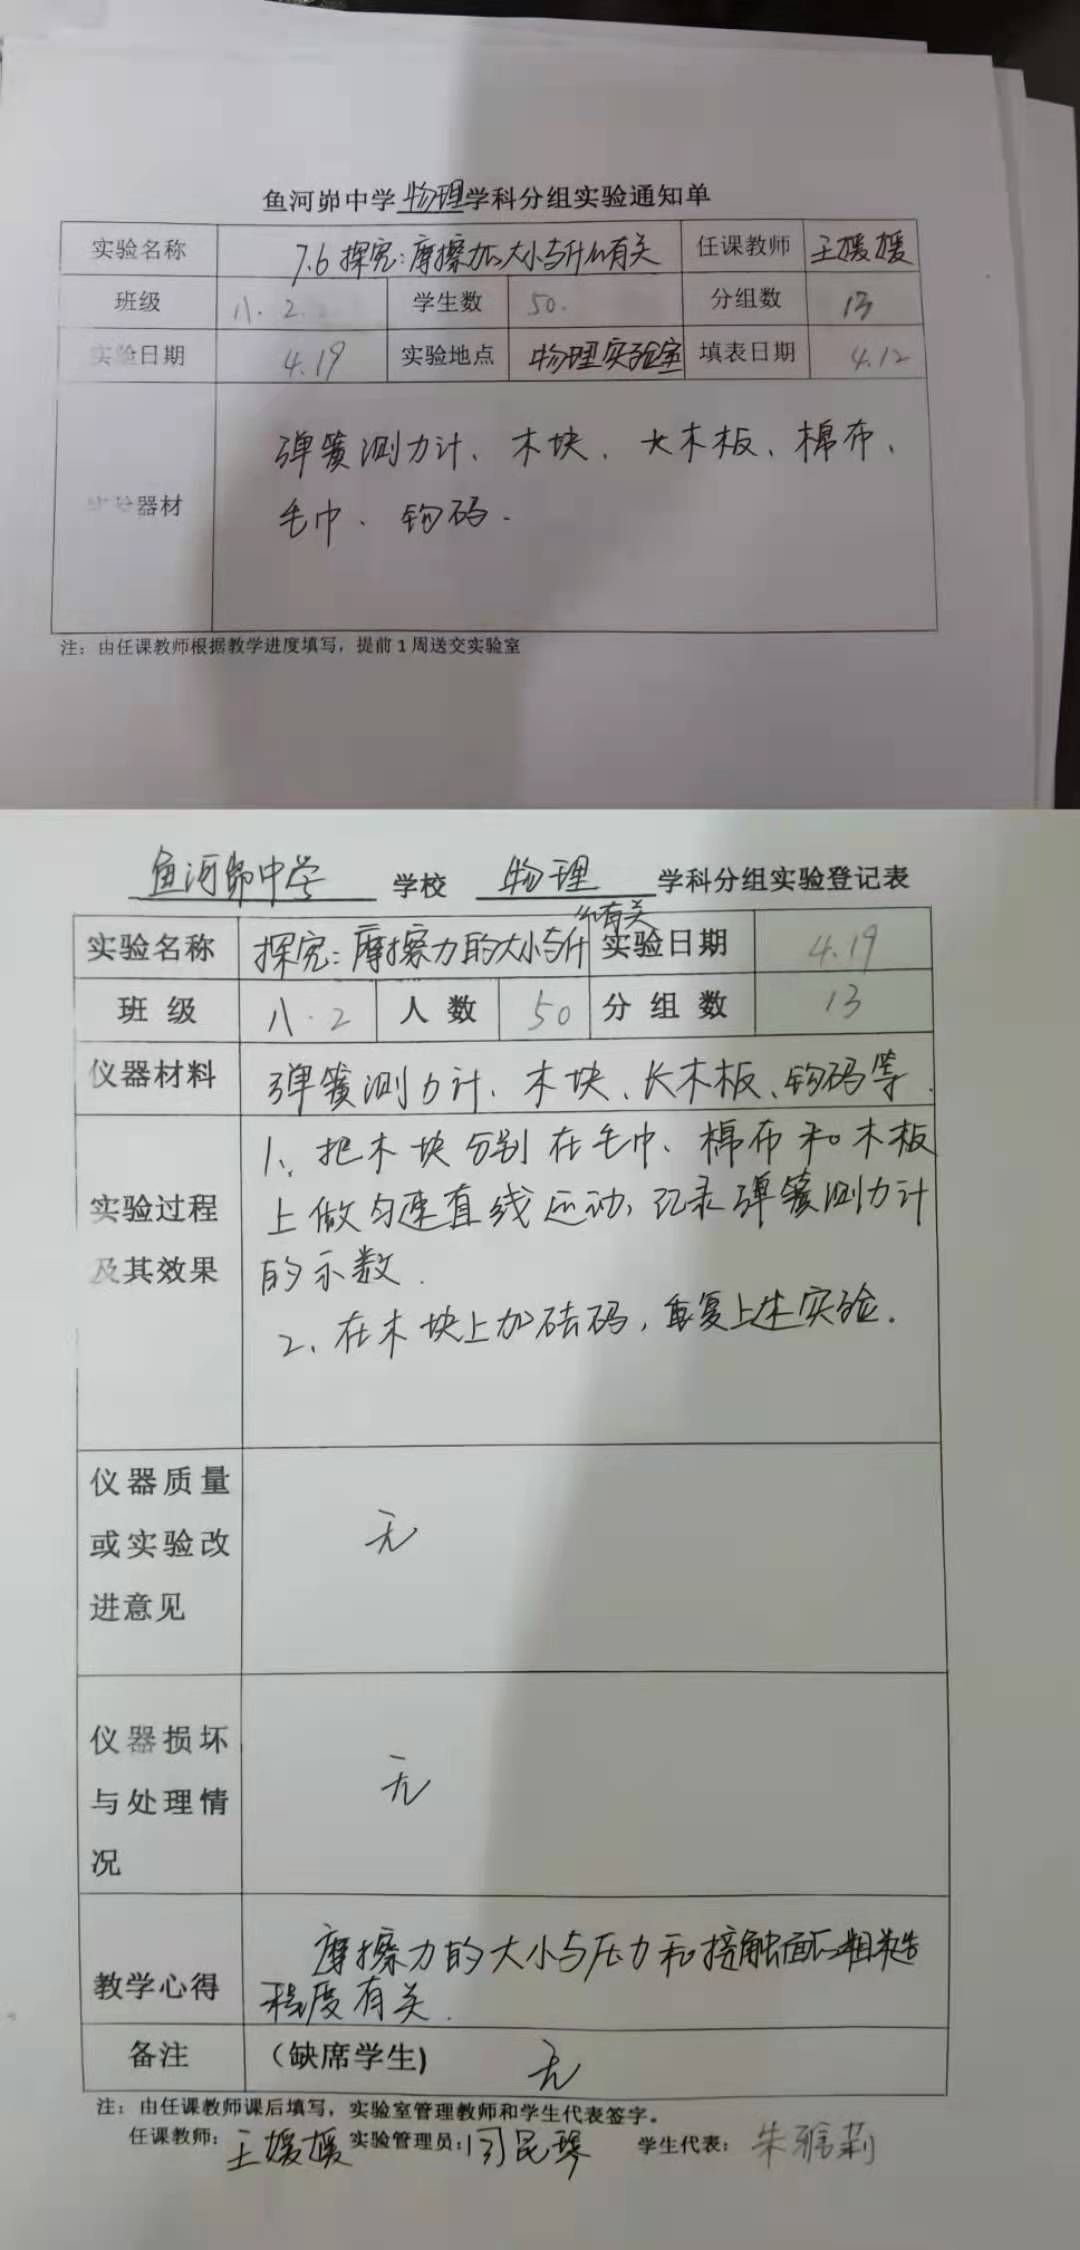 鱼河峁中学物理学科分组实验通知单
实验名称 7.6 探究:摩擦力的大小与什么有关 任课教师 王媛媛
班级 八.2 学生数 50. 分组数 13
实验日期 4.19 实验地点 物理实验室 填表日期 4.12
弹簧测力计、木块、长木板、棉布、
实验器材
毛巾、钩码.
注：由任课教师根据教学进度填写，提前1周送交实验室
鱼河峁中学 学校 物理 学科分组实验登记表
实验名称 探究:摩擦力的大小与什么有关 实验日期 4.19
班级 八.2 人数 50 分组数 13
仪器材料 弹簧测力计、木块、长木板、钩码等.
实验过程及其效果
1、把木块分别在毛巾、棉布和木板
上做匀速直线运动,记录弹簧测力计
的示数.
2、在木块上加砝码,重复上述实验.
仪器质量
或实验改
进意见
无
仪器损坏
与处理情
况
无
教学心得
摩擦力的大小与压力和接触面的粗糙
程度有关.
备注 （缺席学生） 无
注：由任课教师课后填写，实验室管理教师和学生代表签字。
任课教师：王媛媛 实验管理员： 学生代表：朱